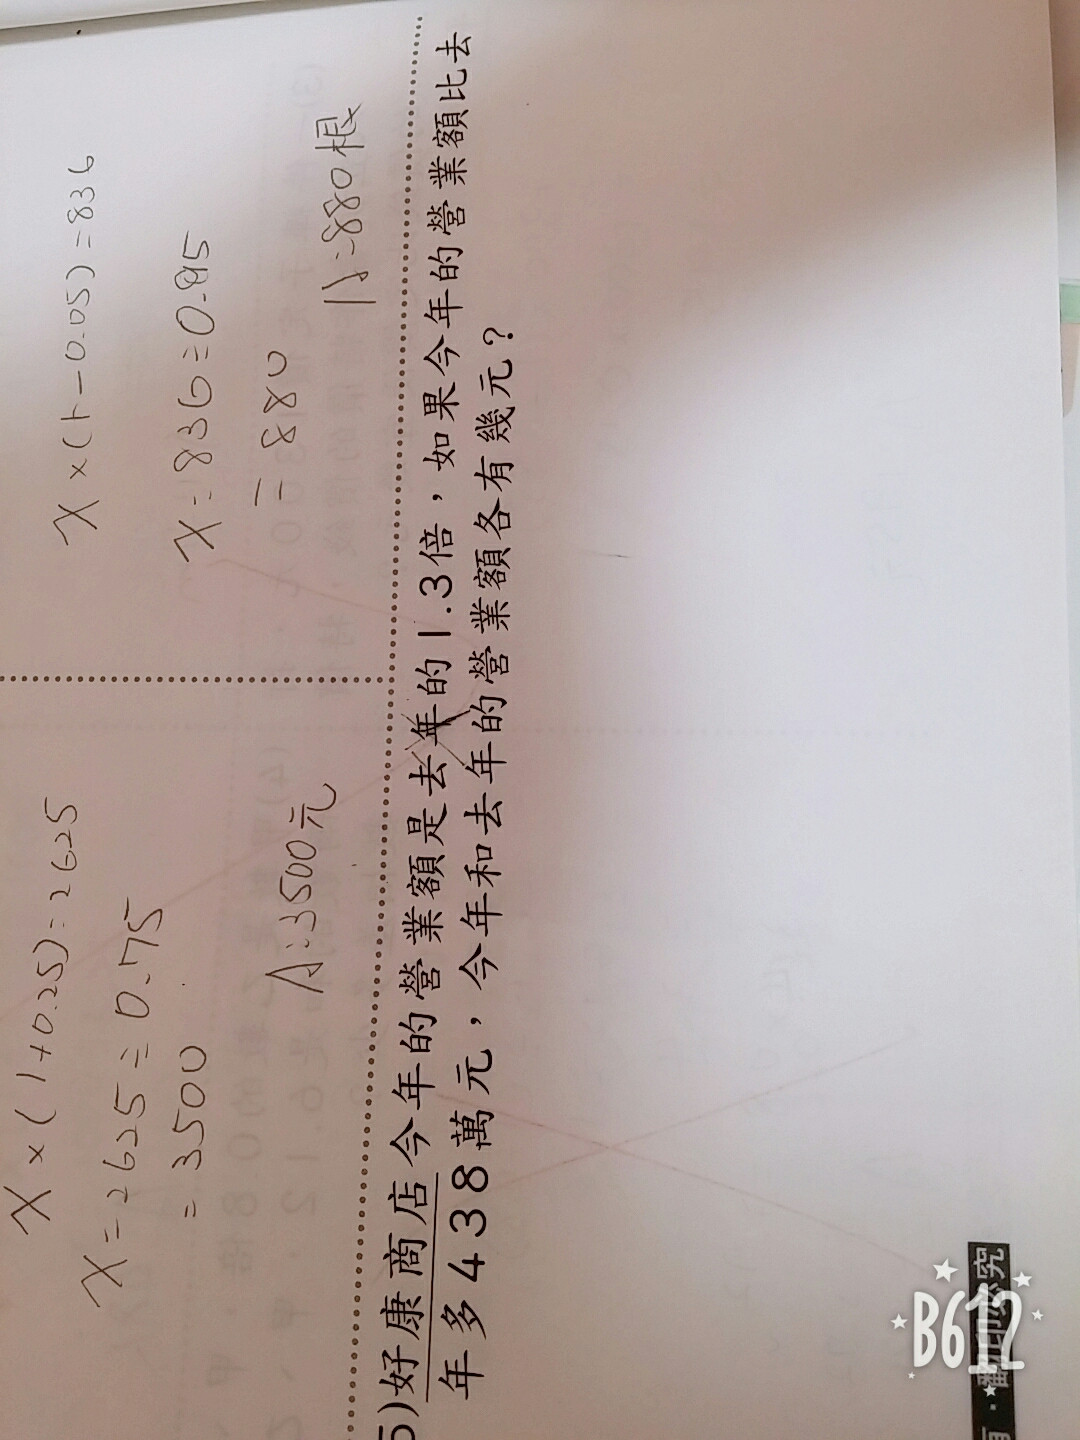 x×(1+0.25)=2625
x=2625÷0.75
=3500
A:3500元
x×(1-0.05)=836
x=836÷0.95
=880
A:880根
5)好康商店今年的營業額是去年的1.3倍，如果今年的營業額比去
年多438萬元，今年和去年的營業額各有幾元？
有·翻印必究
B612